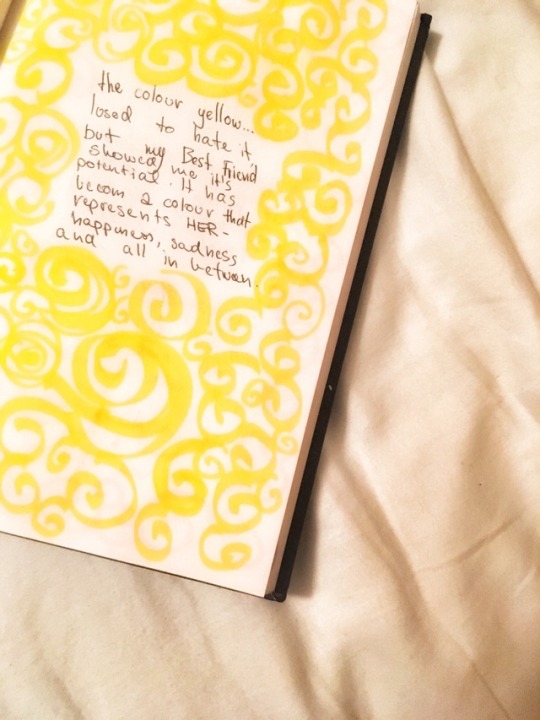 the colour yellow...
I used to hate it,
but my Best Friend
showed me it's
potential. It has
becom a colour that
represents HER -
happiness, sadness
and all in between.